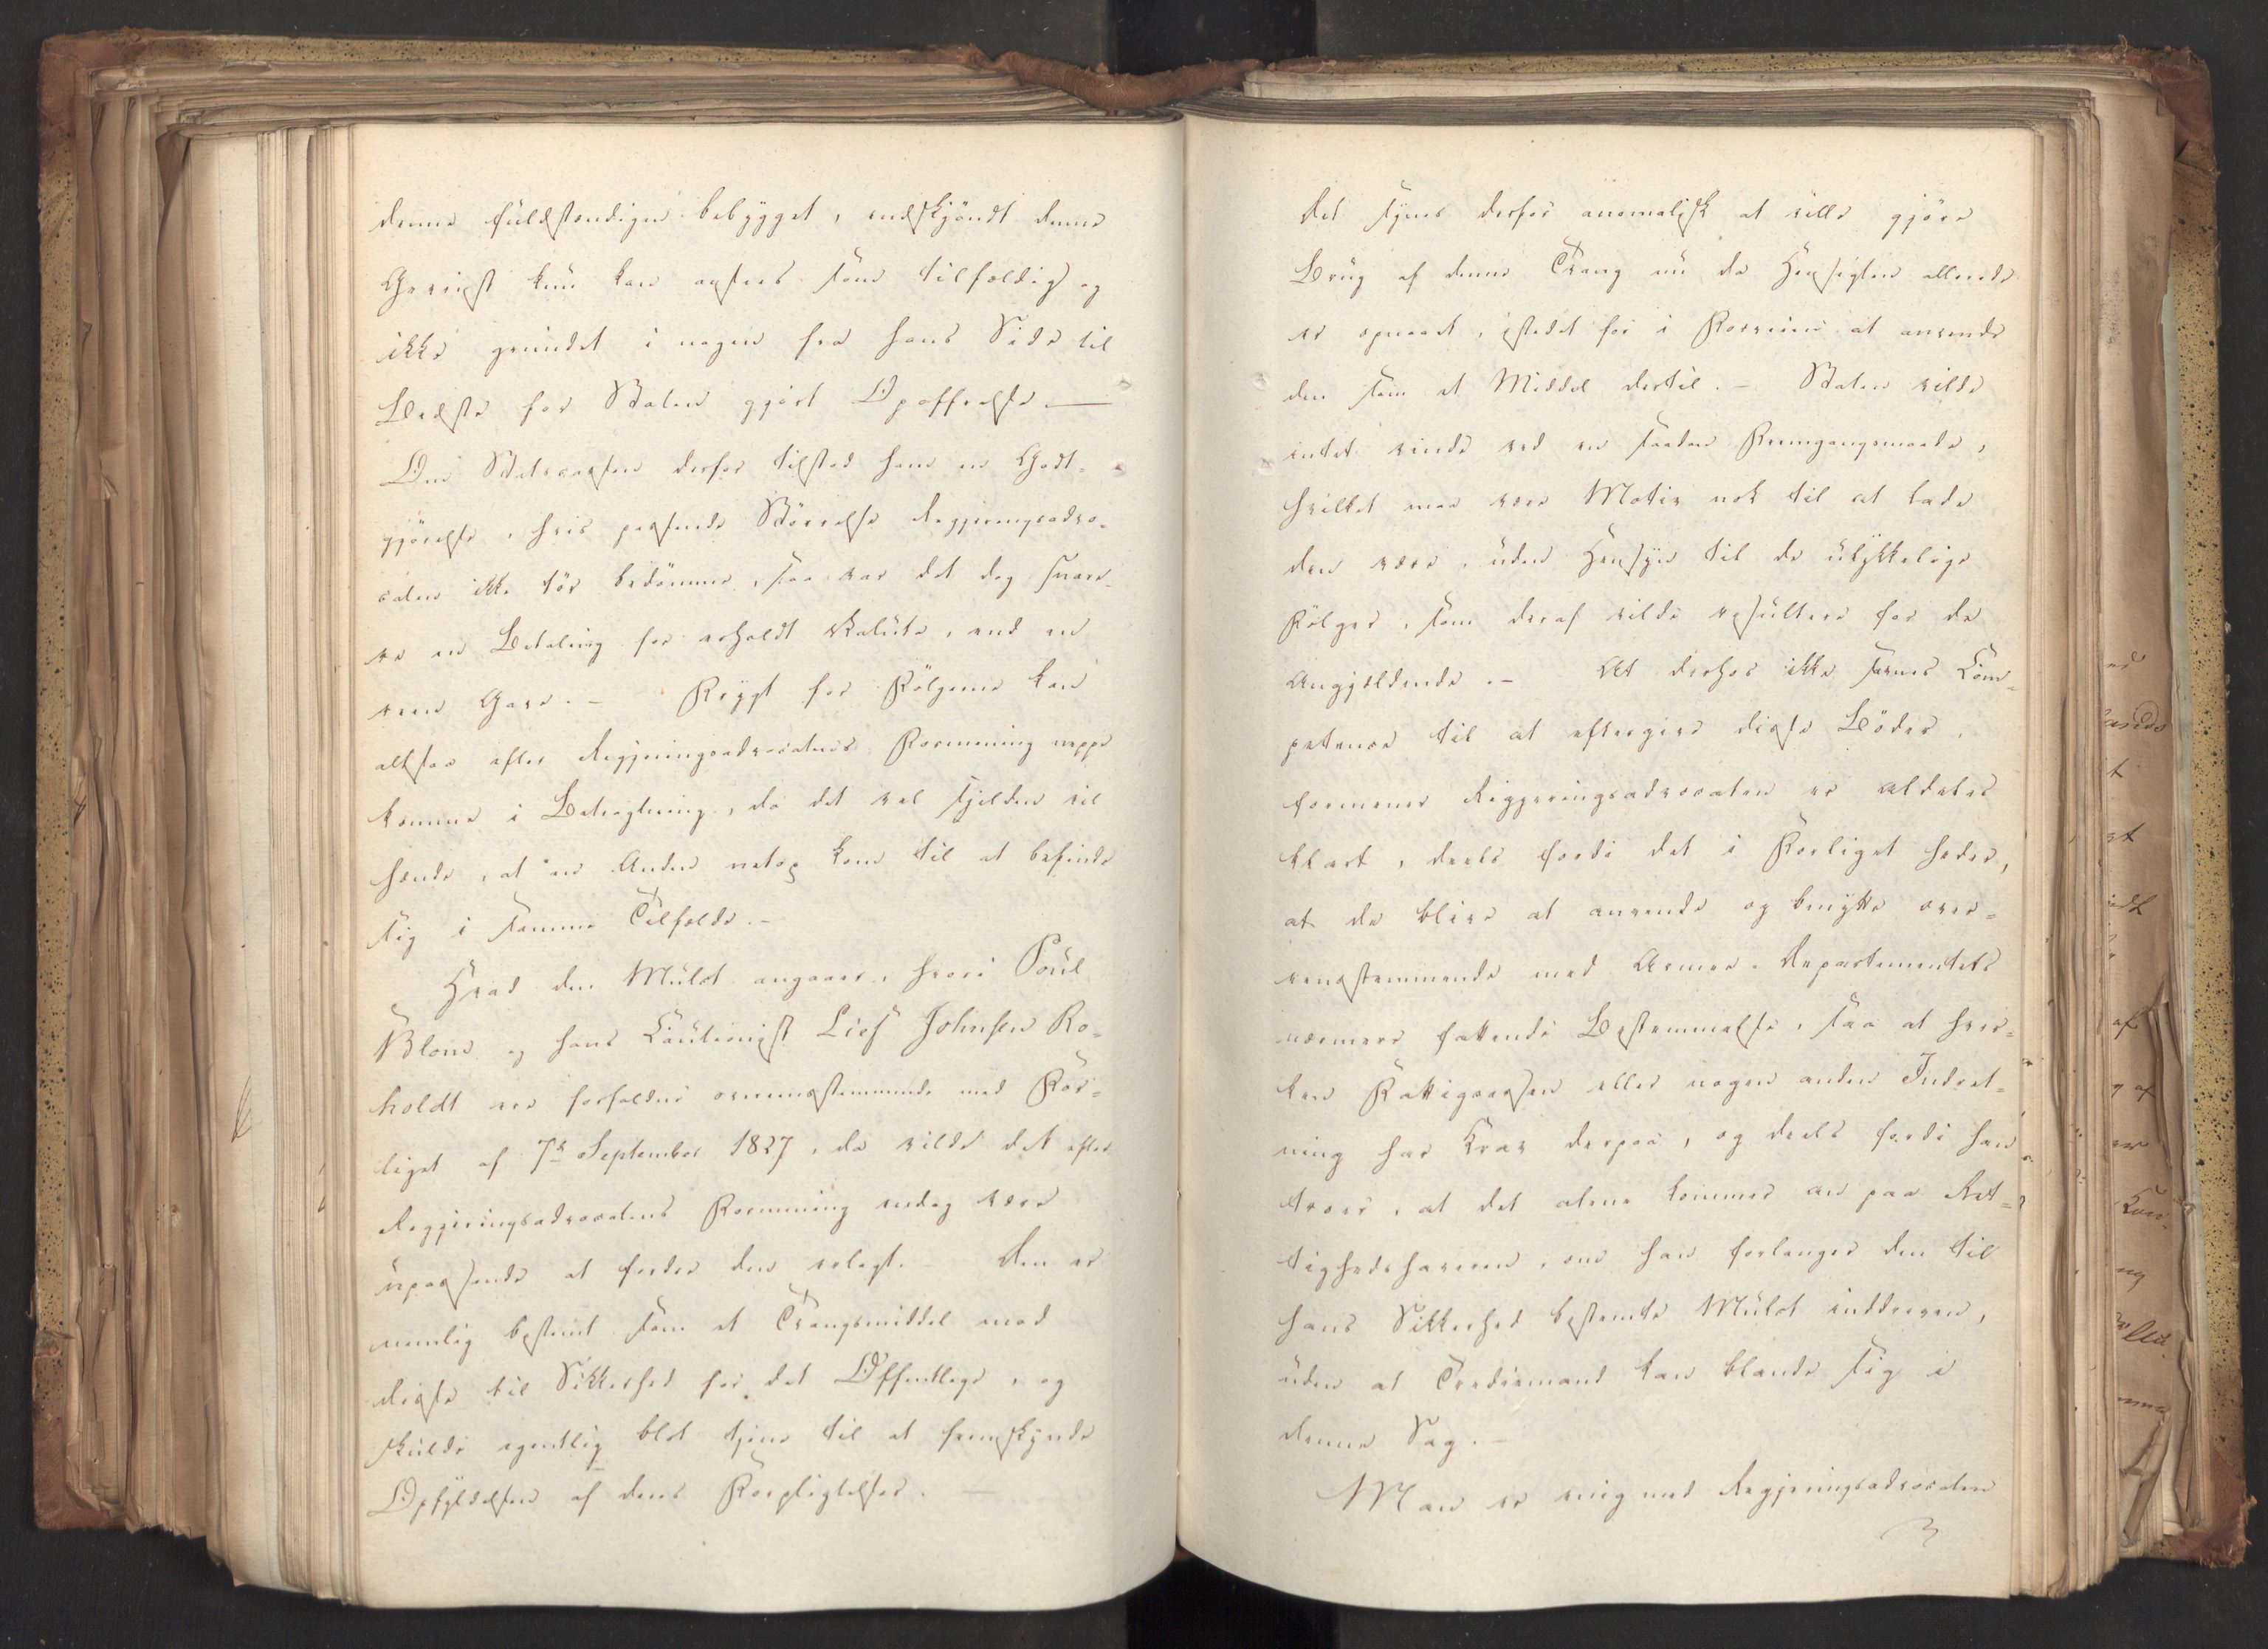 denne fuldstændigen bebygget, endskjöndt denne
Gevinst kun kan ansees som tilfældig og
ikke grundet i nogen fra hans Side til
Bedste for Staten gjort Opoffrelse. —
Om Statscassen derfor tilstod ham en Godt-
gjörelse, hvis passende Störrelse Regjeringsadvo-
caten ikke tör bedömme, saa var det dog snare-
re en Betaling for erholdt Valuta, end en
reen Gave. – Frygt for Fölgerne kan
altsaa efter Regjeringsadvocatens Formening neppe
komme i Betragtning, da det vel sjelden vil
hænde, at en Anden netop kom til at befinde
sig i samme Tilfælde. –
Hvad den Mulct angaaer, hvori Poul
Blom og hans Cautionist Lief Johnsen Ro-
holdt ere forfaldne overensstemmende med For-
liget af 7de September 1827, da vilde det efter
Regjeringsadvocatens Formening endog være
upassende at fordre den erlagt. Den er
nemlig bestemt som et Tvangsmiddel mod
disse til Sikkerhed for det Offentlige, og
skulde egentlig blot tjene til at fremskynde
Opfyldelsen af deres Forpligtelser. —
Det synes derfor anomalisk at ville gjöre
Brug af denne Tvang nu da Hensigten allerede
er opnaaet, istedet for i Forveien at anvende
den som et Middel dertil. – Staten vilde
intet vinde ved en saadan Fremgangsmaade,
hvilket maa være Motiv nok til at lade
den være, uden Hensyn til de ulykkelige
Fölger, som deraf vilde resultere for de
Angjældende. – At derhos ikke savnes Com-
petence til at eftergive disse Böder,
formener Regjeringsadvocaten er aldeles
klart, deels fordi det i Forliget heder,
at de blive at anvende og benytte over-
eensstemmende med Armee-Departementets
nærmere fattende Bestemmelse, saa at hver-
ken Fattigcassen eller nogen anden Indret-
ning har Krav derpaa, og deels fordi han
troer, at det alene kommer an paa Ret-
tighedshaveren, om han forlanger den til
hans Sikkerhed bestemte Mulct inddreven,
uden at Trediemand kan blande sig i
denne Sag. –
Man er enig med Regjeringsadvocaten